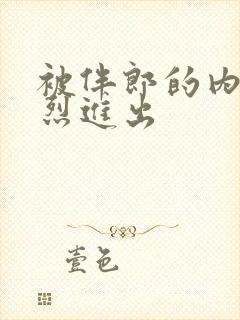 被伴郎的内
烈进出
壹色